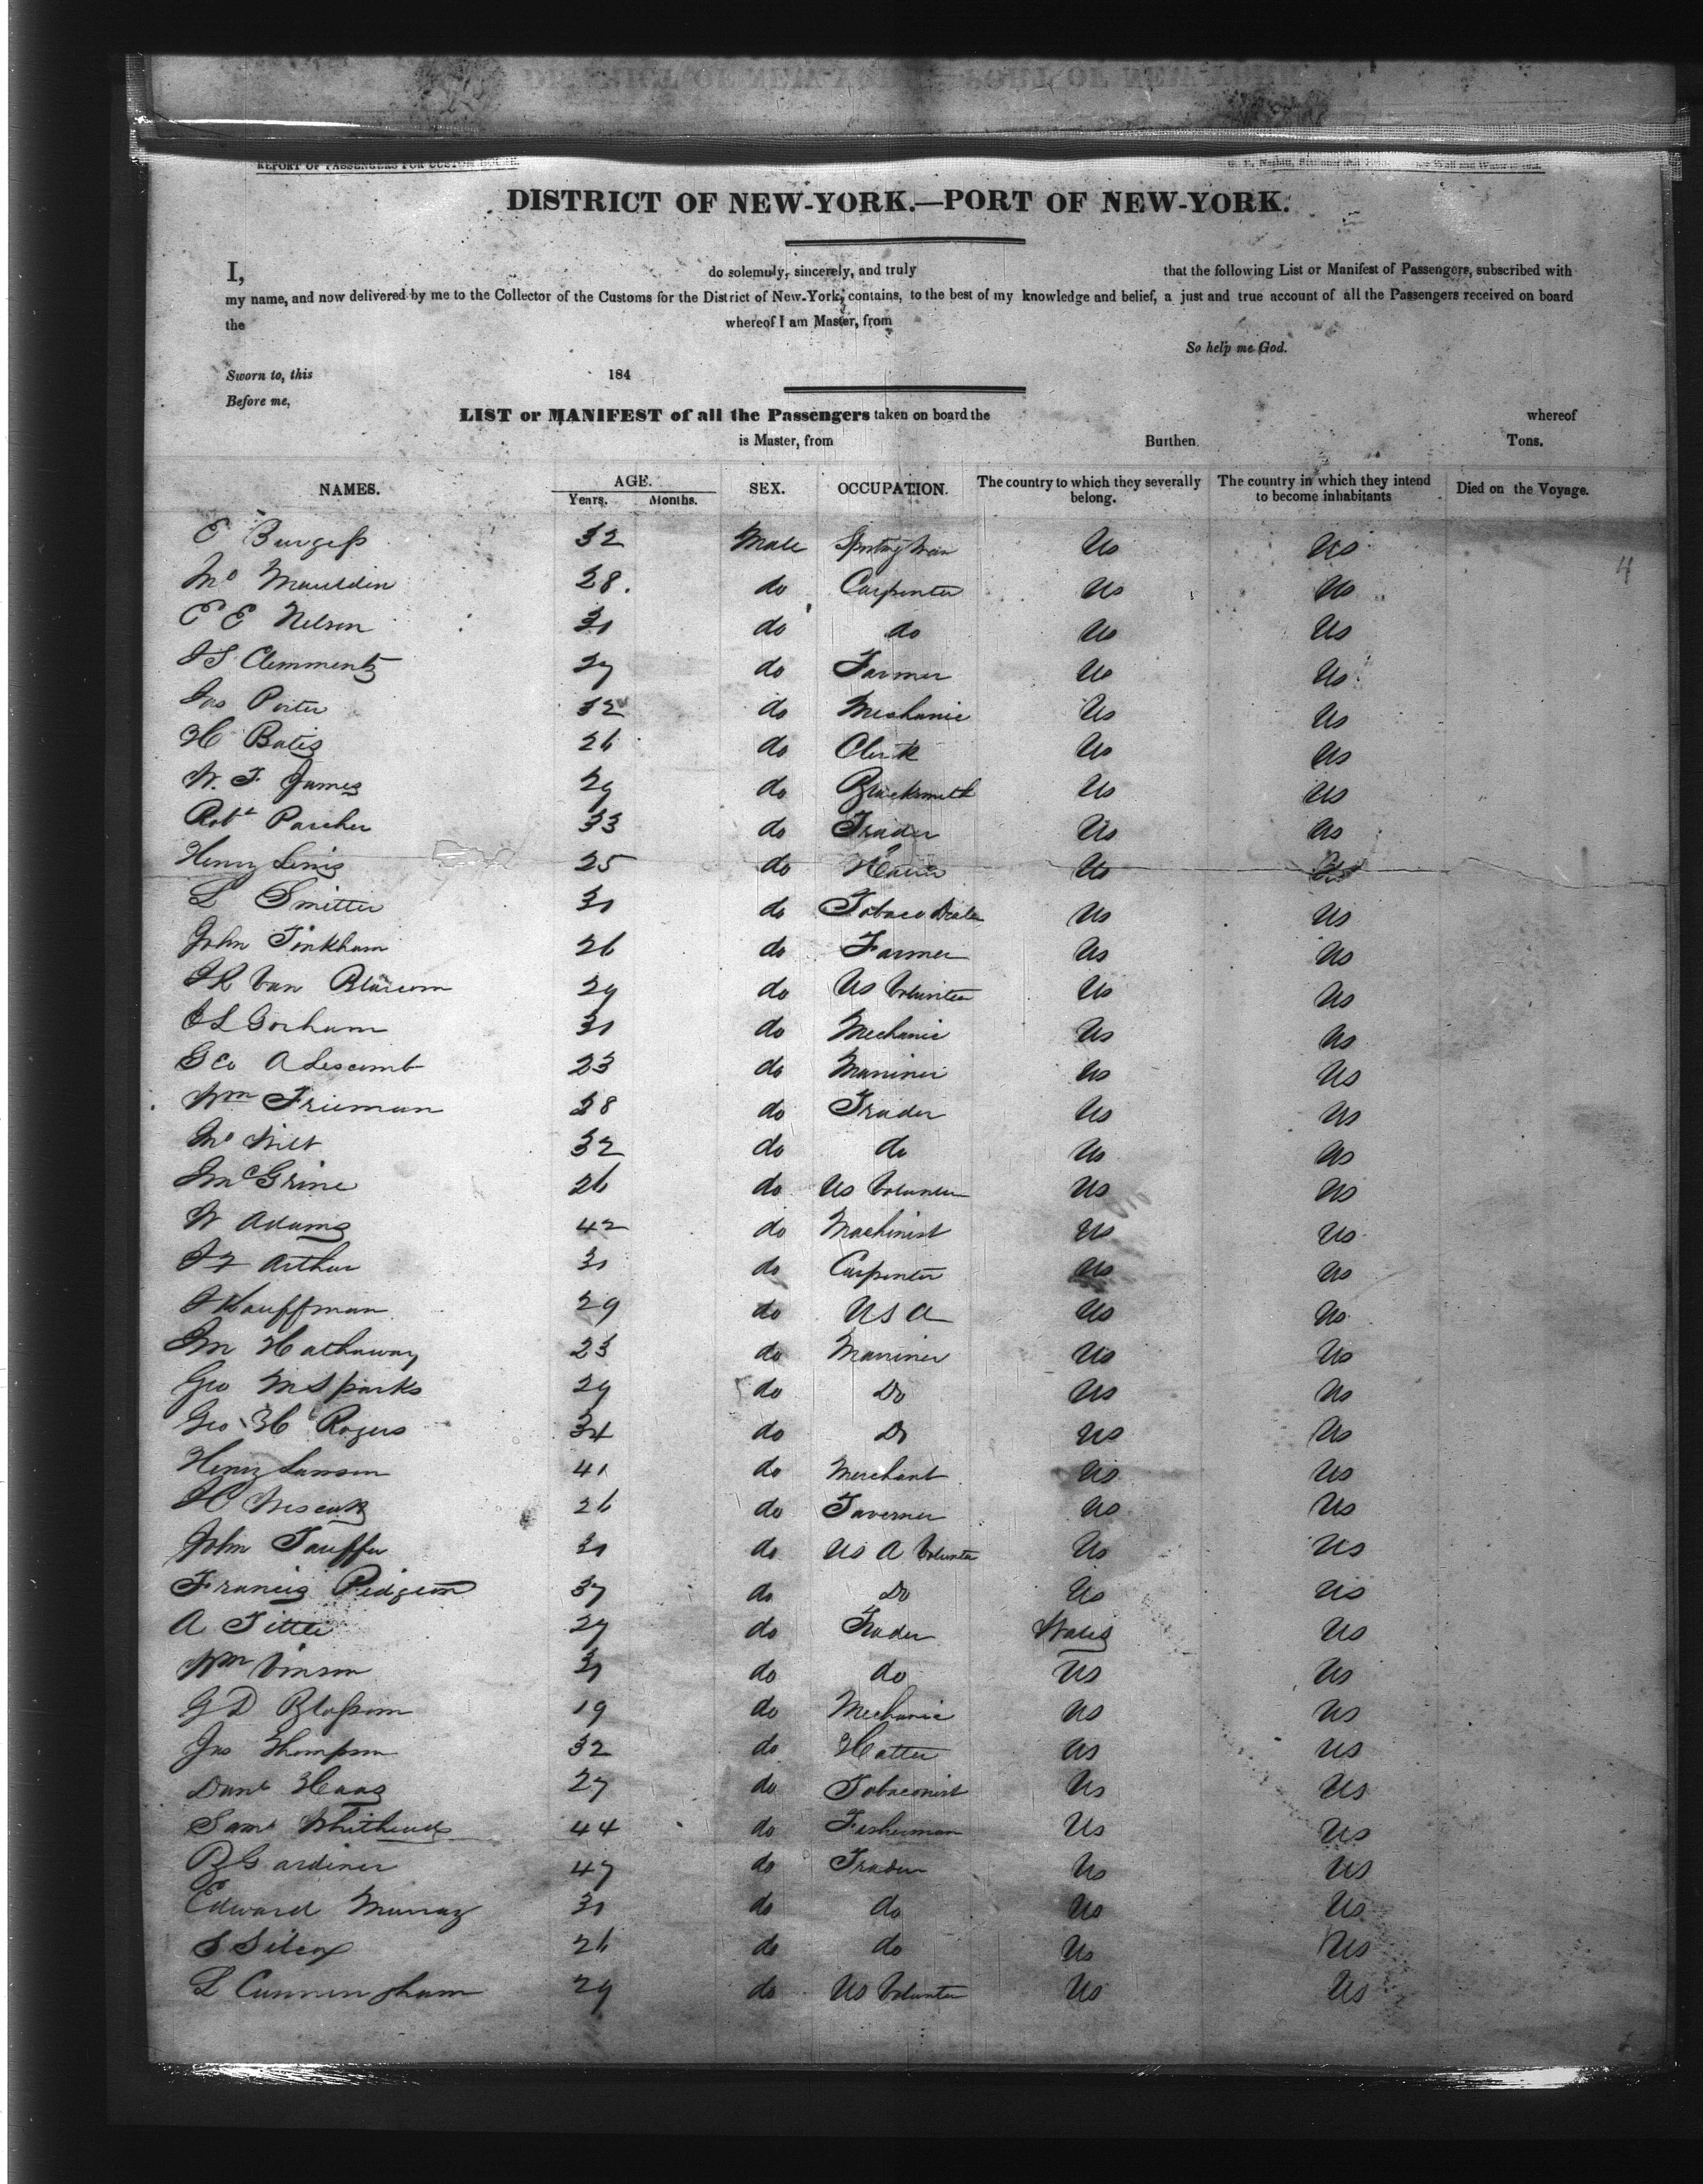 REPORT OF PASSENGERS FOR CUSTOM HOUSE.
DISTRICT OF NEW-YORK.—PORT OF NEW-YORK.
I, do solemnly, sincerely, and truly that the following List or Manifest of Passengers, subscribed with
my name, and now delivered by me to the Collector of the Customs for the District of New-York, contains, to the best of my knowledge and belief, a just and true account of all the Passengers received on board
the whereof I am Master, from
So help me God.
Sworn to, this 184
Before me,
LIST or MANIFEST of all the Passengers taken on board the whereof
is Master, from Burthen Tons.
NAMES. AGE. Years. Months. SEX. OCCUPATION. The country to which they severally belong. The country in which they intend to become inhabitants Died on the Voyage.
E Burgess 32 Male Sporting Man US US
Mauldin 28 do Carpenter US US 4
E E Nelson 31 do do US US
J S Clemments 27 do Farmer US US
Jas Porter 32 do Mechanic US US
H Bates 26 do Clerk US US
W. F. James 29 do Blacksmith US US
Robt Parcher 33 do Trader US US
Henry Lewis 25 do US
L Smitter 31 do Tobaco Dealer US US
John Tinkham 26 do Farmer US US
J R Van Blarcom 29 do US Volunteer US US
J L Gorham 31 do Mechanic US US
Geo A Lescomb 23 do Mariner US US
Wm Frieman 28 do Trader US US
Wilt 32 do do US US
26 do US Volunteer US US
W Adams 42 do Machinist US US
J F Arthur 31 do Carpenter US US
J Kauffman 29 do U S A US US
Jn Hathaway 23 do Mariner US US
Geo M Sparks 29 do Do US US
Geo H Rogers 34 do Do US US
Henry Lanson 41 do Merchant US US
H 26 do Taverner US US
John Tauffer 31 do US A Volunteer US US
Francis Pidgeon 37 do Do US US
A Tittle 27 do Trader Wales US
Wm Vinson 31 do do US US
G D Blossom 19 do Mechanic US US
Jno Thompson 32 do Hatter US US
Danl Haas 27 do Tobaconist US US
Saml Whitheads 44 do Fisherman US US
B Gardiner 47 do Trader US US
Edward Murray 31 do do US US
S Silcox 26 do do US US
L Cunningham 29 do US Volunteer US US